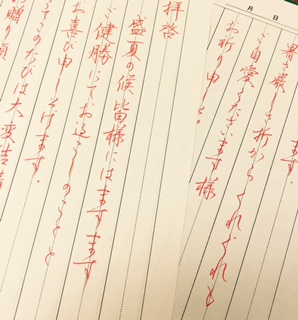 拝啓
盛夏の候皆様にはますます
ご健勝にてお過ごしのことと
お喜び申し上げます。
さてこのたびは大変結構
お贈り頂
ます。
暑さ厳しき折からくれぐれも
ご自愛くださいます様
お祈り申し
月 日